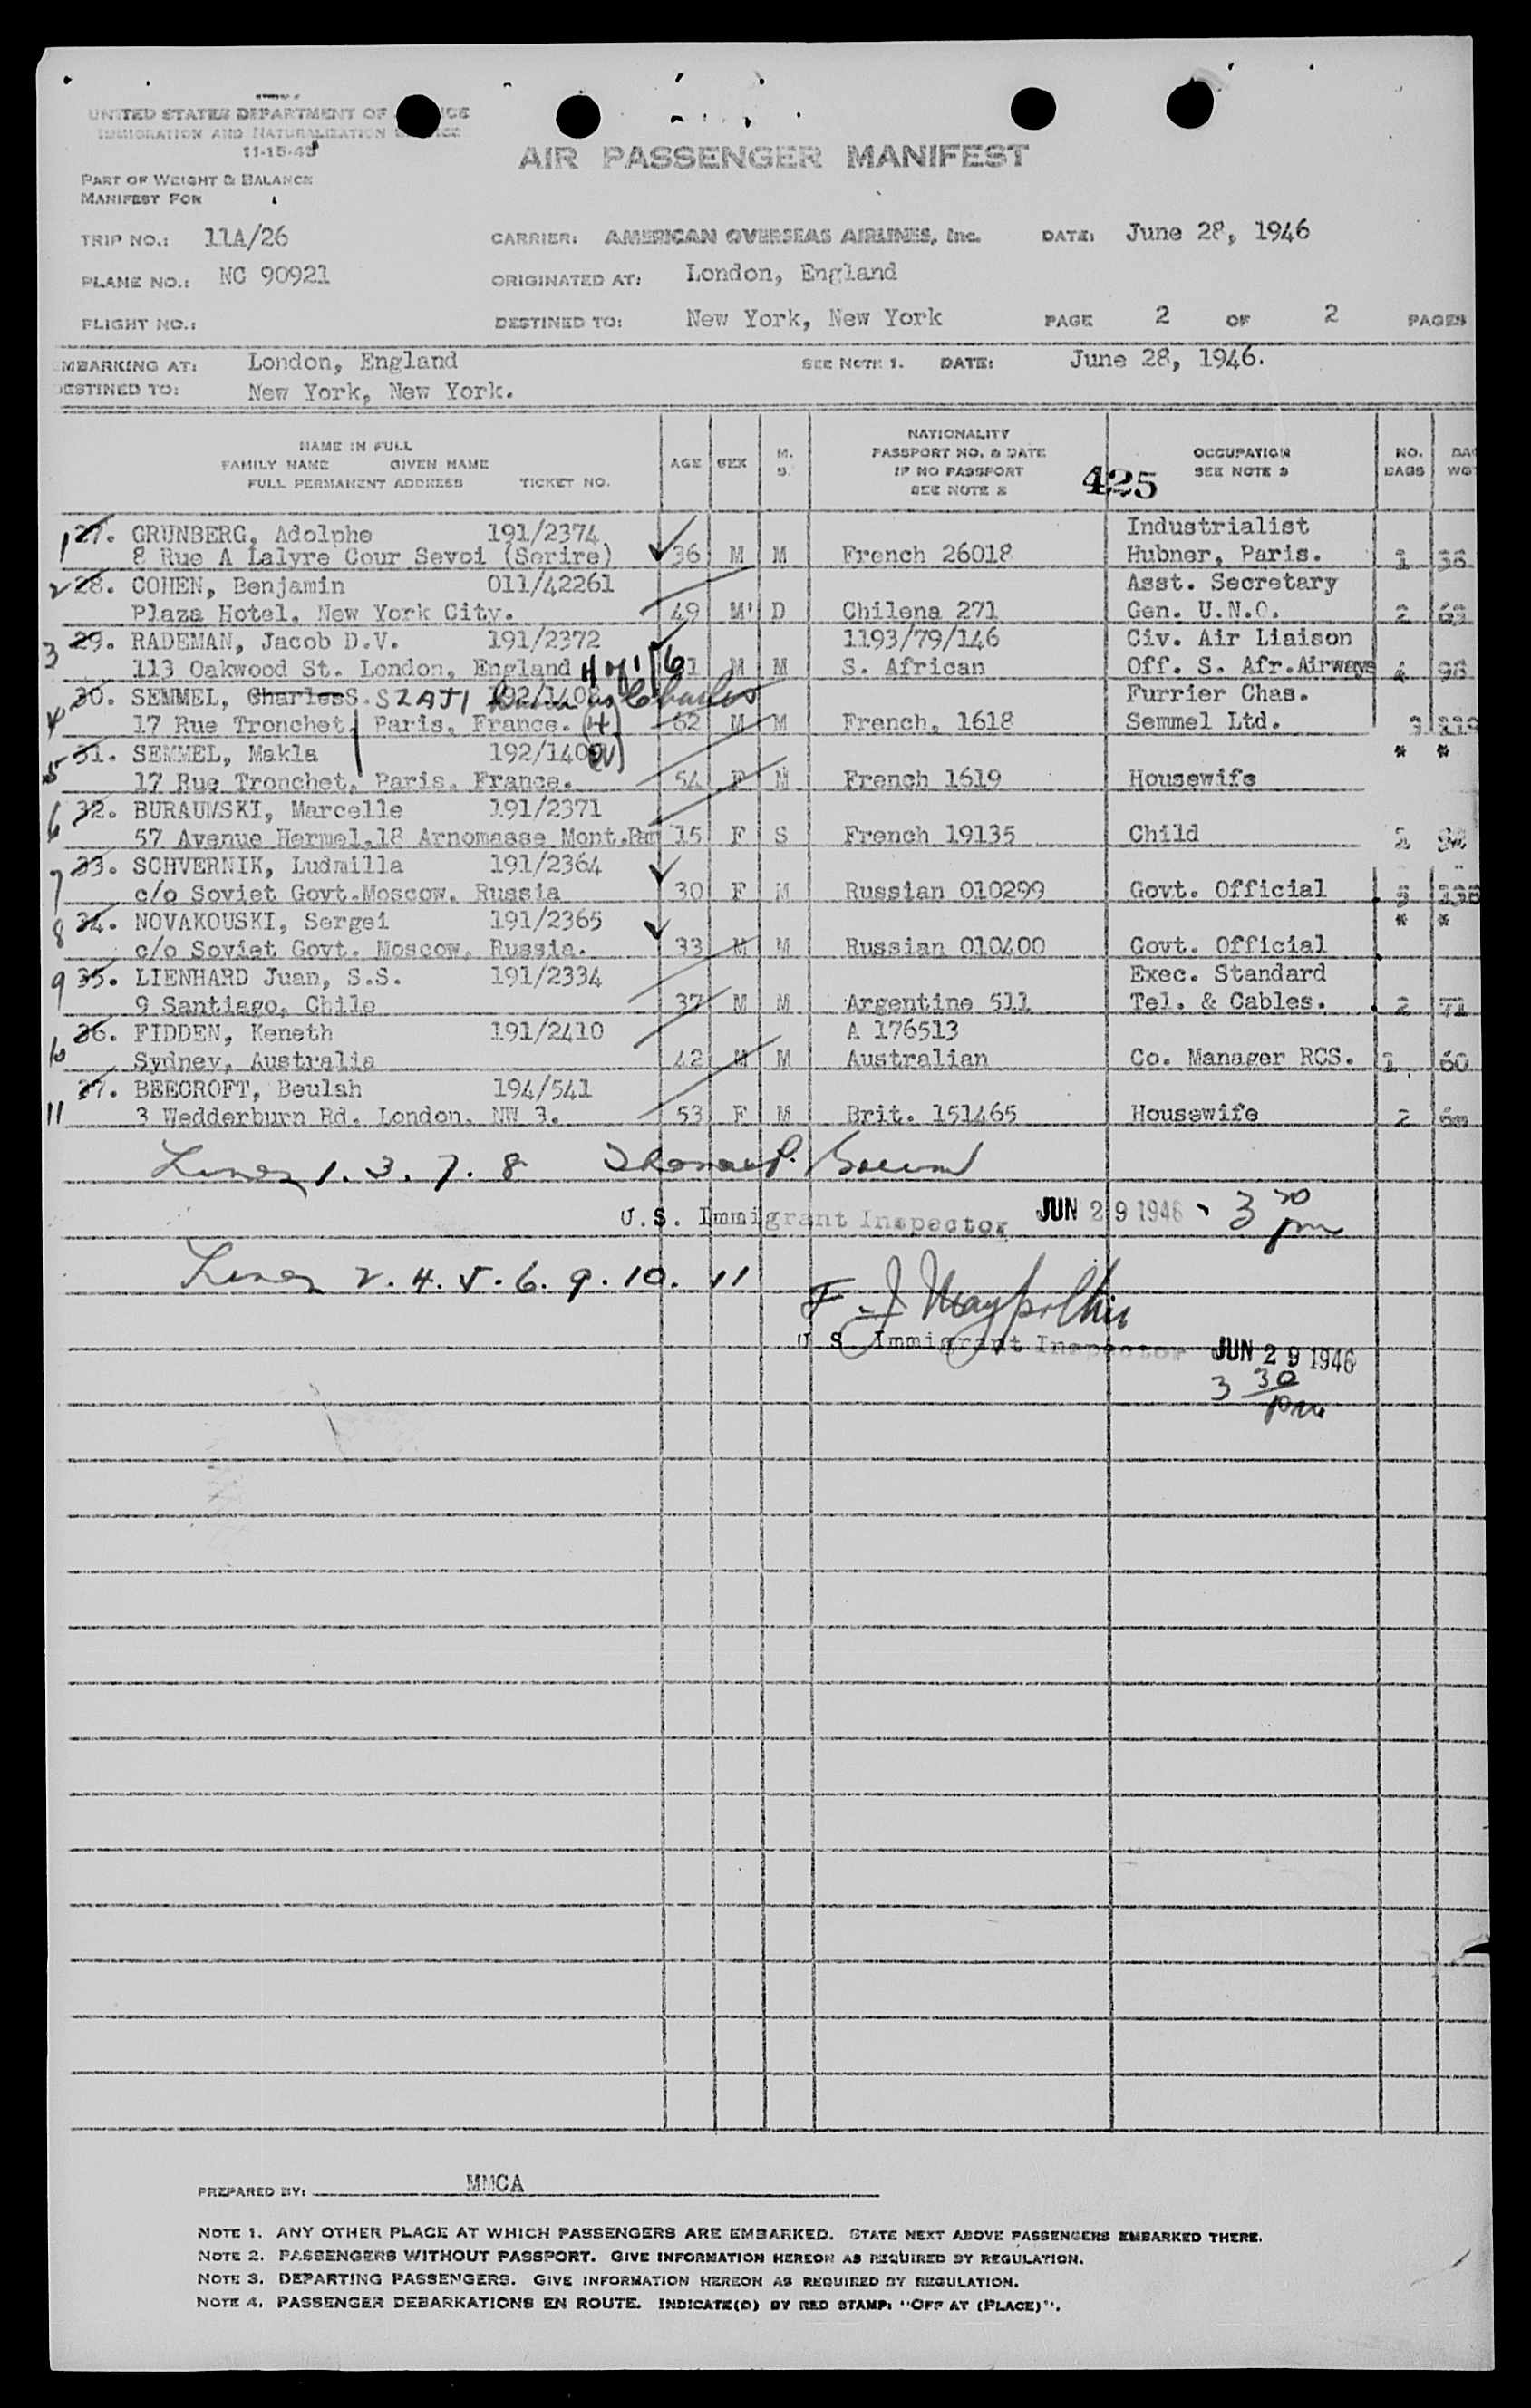 UNITED STATES DEPARTMENT OF
IMMIGRATION AND NATURALIZATION
11-15-45
AIR PASSENGER MANIFEST
PART OF WEIGHT & BALANCE
MANIFEST FOR
TRIP NO.: 11A/26 CARRIER: AMERICAN OVERSEAS AIRLINES, Inc. DATE: June 28, 1946
PLANE NO.: NC 90921 ORIGINATED AT: London, England
FLIGHT NO.: DESTINED TO: New York, New York PAGE 2 OF 2 PAGES
EMBARKING AT: London, England SEE NOTE 1. DATE: June 28, 1946.
DESTINED TO: New York, New York.
NAME IN FULL
FAMILY NAME GIVEN NAME
FULL PERMANENT ADDRESS TICKET NO.
AGE SEX M. S.
NATIONALITY
PASSPORT NO. & DATE
IF NO PASSPORT
SEE NOTE 2
425
OCCUPATION
SEE NOTE 3
NO. BAGS
BAG WGT
1 27. GRUNBERG, Adolphe 191/2374 Industrialist
8 Rue A Lalyre Cour Sevoi (Serire) 36 M M French 26018 Hubner, Paris. 1 36
2 28. COHEN, Benjamin 011/42261 Asst. Secretary
Plaza Hotel, New York City. 49 M D Chilena 271 Gen. U.N.O. 2 63
3 29. RADEMAN, Jacob D.V. 191/2372 1193/79/146 Civ. Air Liaison
113 Oakwood St. London, England M M S. African Off. S. Afr. Airways 4 98
4 30. SEMMEL, Charles S. SZAJI 192/1408 as Charles Furrier Chas.
17 Rue Tronchet, Paris, France. (H) 62 M M French, 1618 Semmel Ltd. 3 119
5 31. SEMMEL, Makla 192/1409 (W) * *
17 Rue Tronchet, Paris, France. 54 F M French 1619 Housewife
6 32. BURAUMSKI, Marcelle 191/2371
57 Avenue Hermel,18 Arnomasse Mont.Par 15 F S French 19135 Child
7 33. SCHVERNIK, Ludmilla 191/2364
c/o Soviet Govt.Moscow, Russia 30 F M Russian 010299 Govt. Official 5 138
8 34. NOVAKOUSKI, Sergei 191/2365 * *
c/o Soviet Govt. Moscow, Russia. 33 M M Russian 010400 Govt. Official
9 35. LIENHARD Juan, S.S. 191/2334 Exec. Standard
9 Santiago, Chile 37 M M Argentine 511 Tel. & Cables. 2 71
10 36. FIDDEN, Keneth 191/2410 A 176513
Sydney, Australia 42 M M Australian Co. Manager RCS. 1 60
11 37. BEECROFT, Beulah 194/541
3 Wedderburn Rd. London, NW 3. 53 F M Brit. 151465 Housewife 2
Lines 1. 3. 7. 8 Thomas P.
U.S. Immigrant Inspector JUN 29 1946 - 3 30 pm
Lines 2. 4. 5. 6. 9. 10. 11
F. J.
U. S. Immigrant Inspector JUN 29 1946
3 30 pm
PREPARED BY: MMCA
NOTE 1. ANY OTHER PLACE AT WHICH PASSENGERS ARE EMBARKED. STATE NEXT ABOVE PASSENGERS EMBARKED THERE.
NOTE 2. PASSENGERS WITHOUT PASSPORT. GIVE INFORMATION HEREON AS REQUIRED BY REGULATION.
NOTE 3. DEPARTING PASSENGERS. GIVE INFORMATION HEREON AS REQUIRED BY REGULATION.
NOTE 4. PASSENGER DEBARKATIONS EN ROUTE. INDICATE(D) BY RED STAMP: "OFF AT (PLACE)".